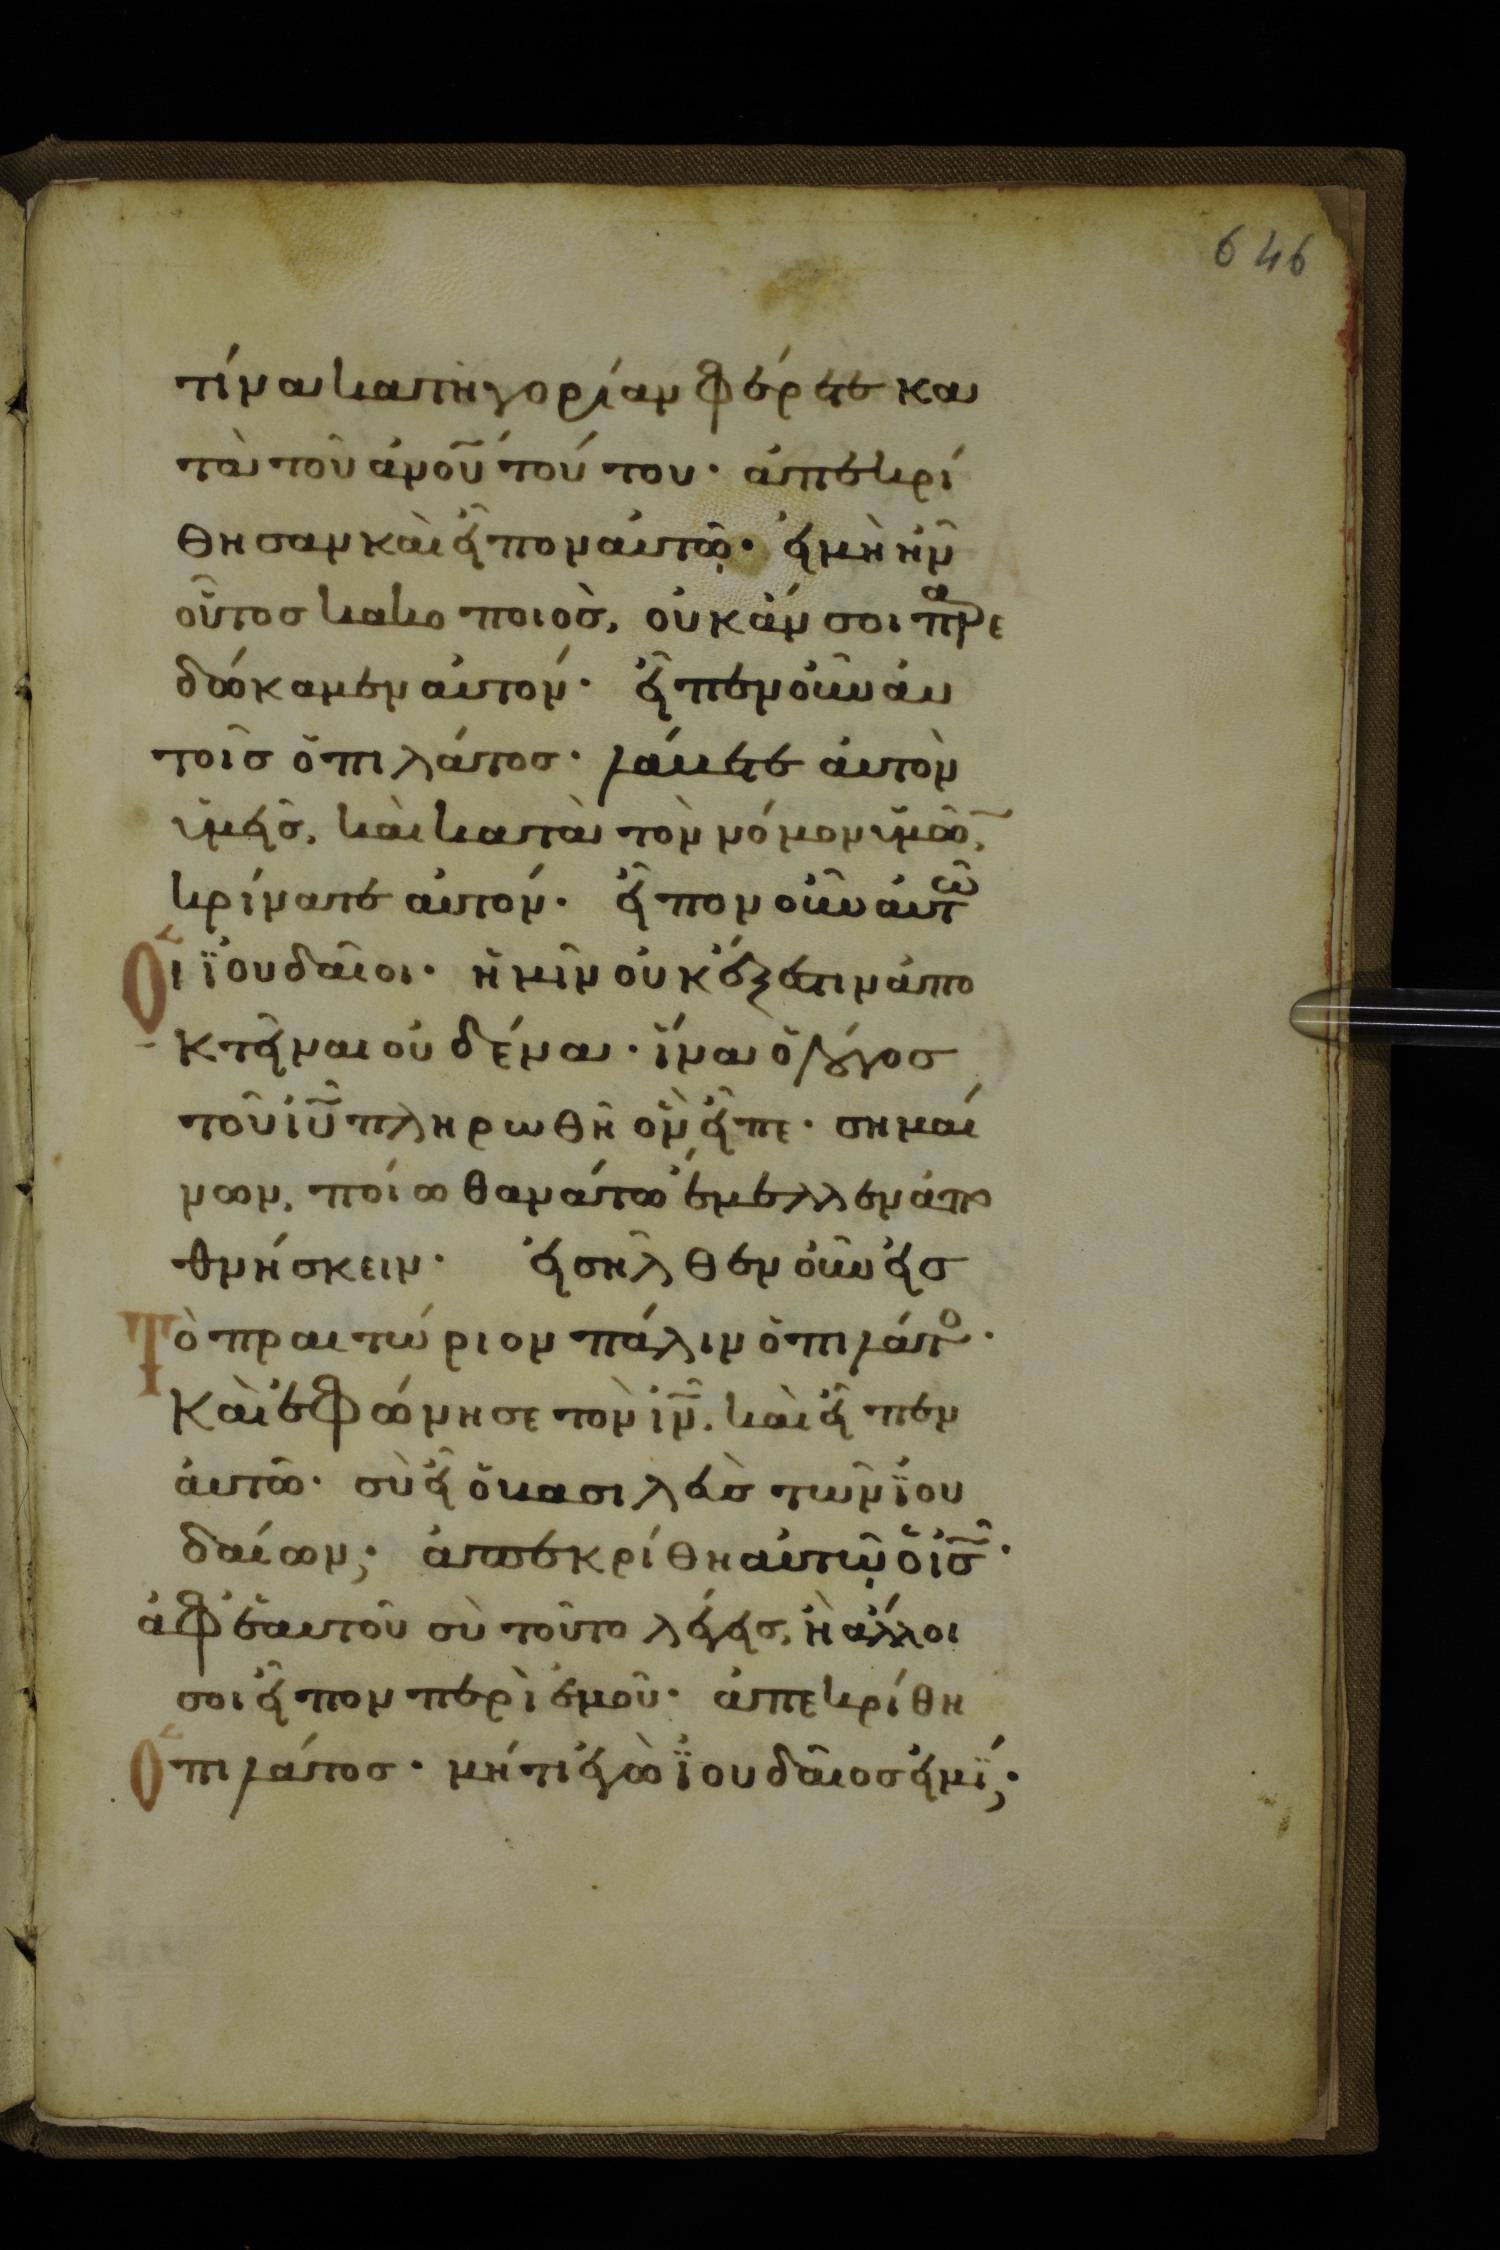 646
τίνα κατηγορίαν φέρετε κα
τὰ τοῦ ἀνοῦ τούτου· ἀπεκρί
θησαν καὶ εἶπον αὐτῷ· εἰ μὴ ἦν
οὗτος κακοποιὸς, οὐκ ἄν σοι παρε
δώκαμεν αὐτόν· εἶπεν οὖν αὐ
τοῖς ὁ πιλάτος· λάβετε αὐτὸν
ὑμεῖς, καὶ κατὰ τὸν νόμον ὑμῶ,
κρίνατε αὐτόν· εἶπον οὖν αὐτῶ
Οἱ ϊουδαῖοι· ἡμῖν οὐκ ἔξεστιν ἀπο
κτεῖναι οὐδένα· ἵνα ὁ λόγος
τοῦ ἰῦ πληρωθῆ ὃν εἶπε· σημαί
νων, ποίω θανάτω ἔμελλεν ἀπο
θνήσκειν· εἰσῆλθεν οὖν εἰς
Τὸ πραιτώριον πάλιν ὁ πιλάτο·
Καὶ ἐφώνησε τὸν ἰν, καὶ εἶπεν
αὐτῶ· σὺ εἶ ὁ βασιλεὺς τῶν ϊου
δαίων; ἀπεκρίθη αὐτῷ ὁ ἰς·
ἀφ ἑαυτοῦ σὺ τοῦτο λέγεις, ἢ ἄλλοι
σοι εἶπον περὶ ἐμοῦ· ἀπεκρίθη
Ὁ πιλάτος· μήτι ἐγὼ ϊουδαῖος εἰμϊ;